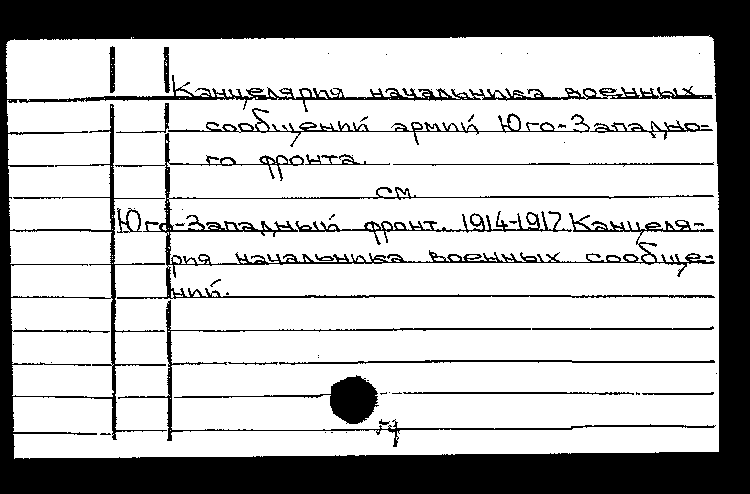 Канцелярия начальника военных
сообщений армий Юго-Западно=
го фронта.
см.
Юго-Западный фронт. 1914-1917. Канцеля-
рия начальника военных сообще=
ний.